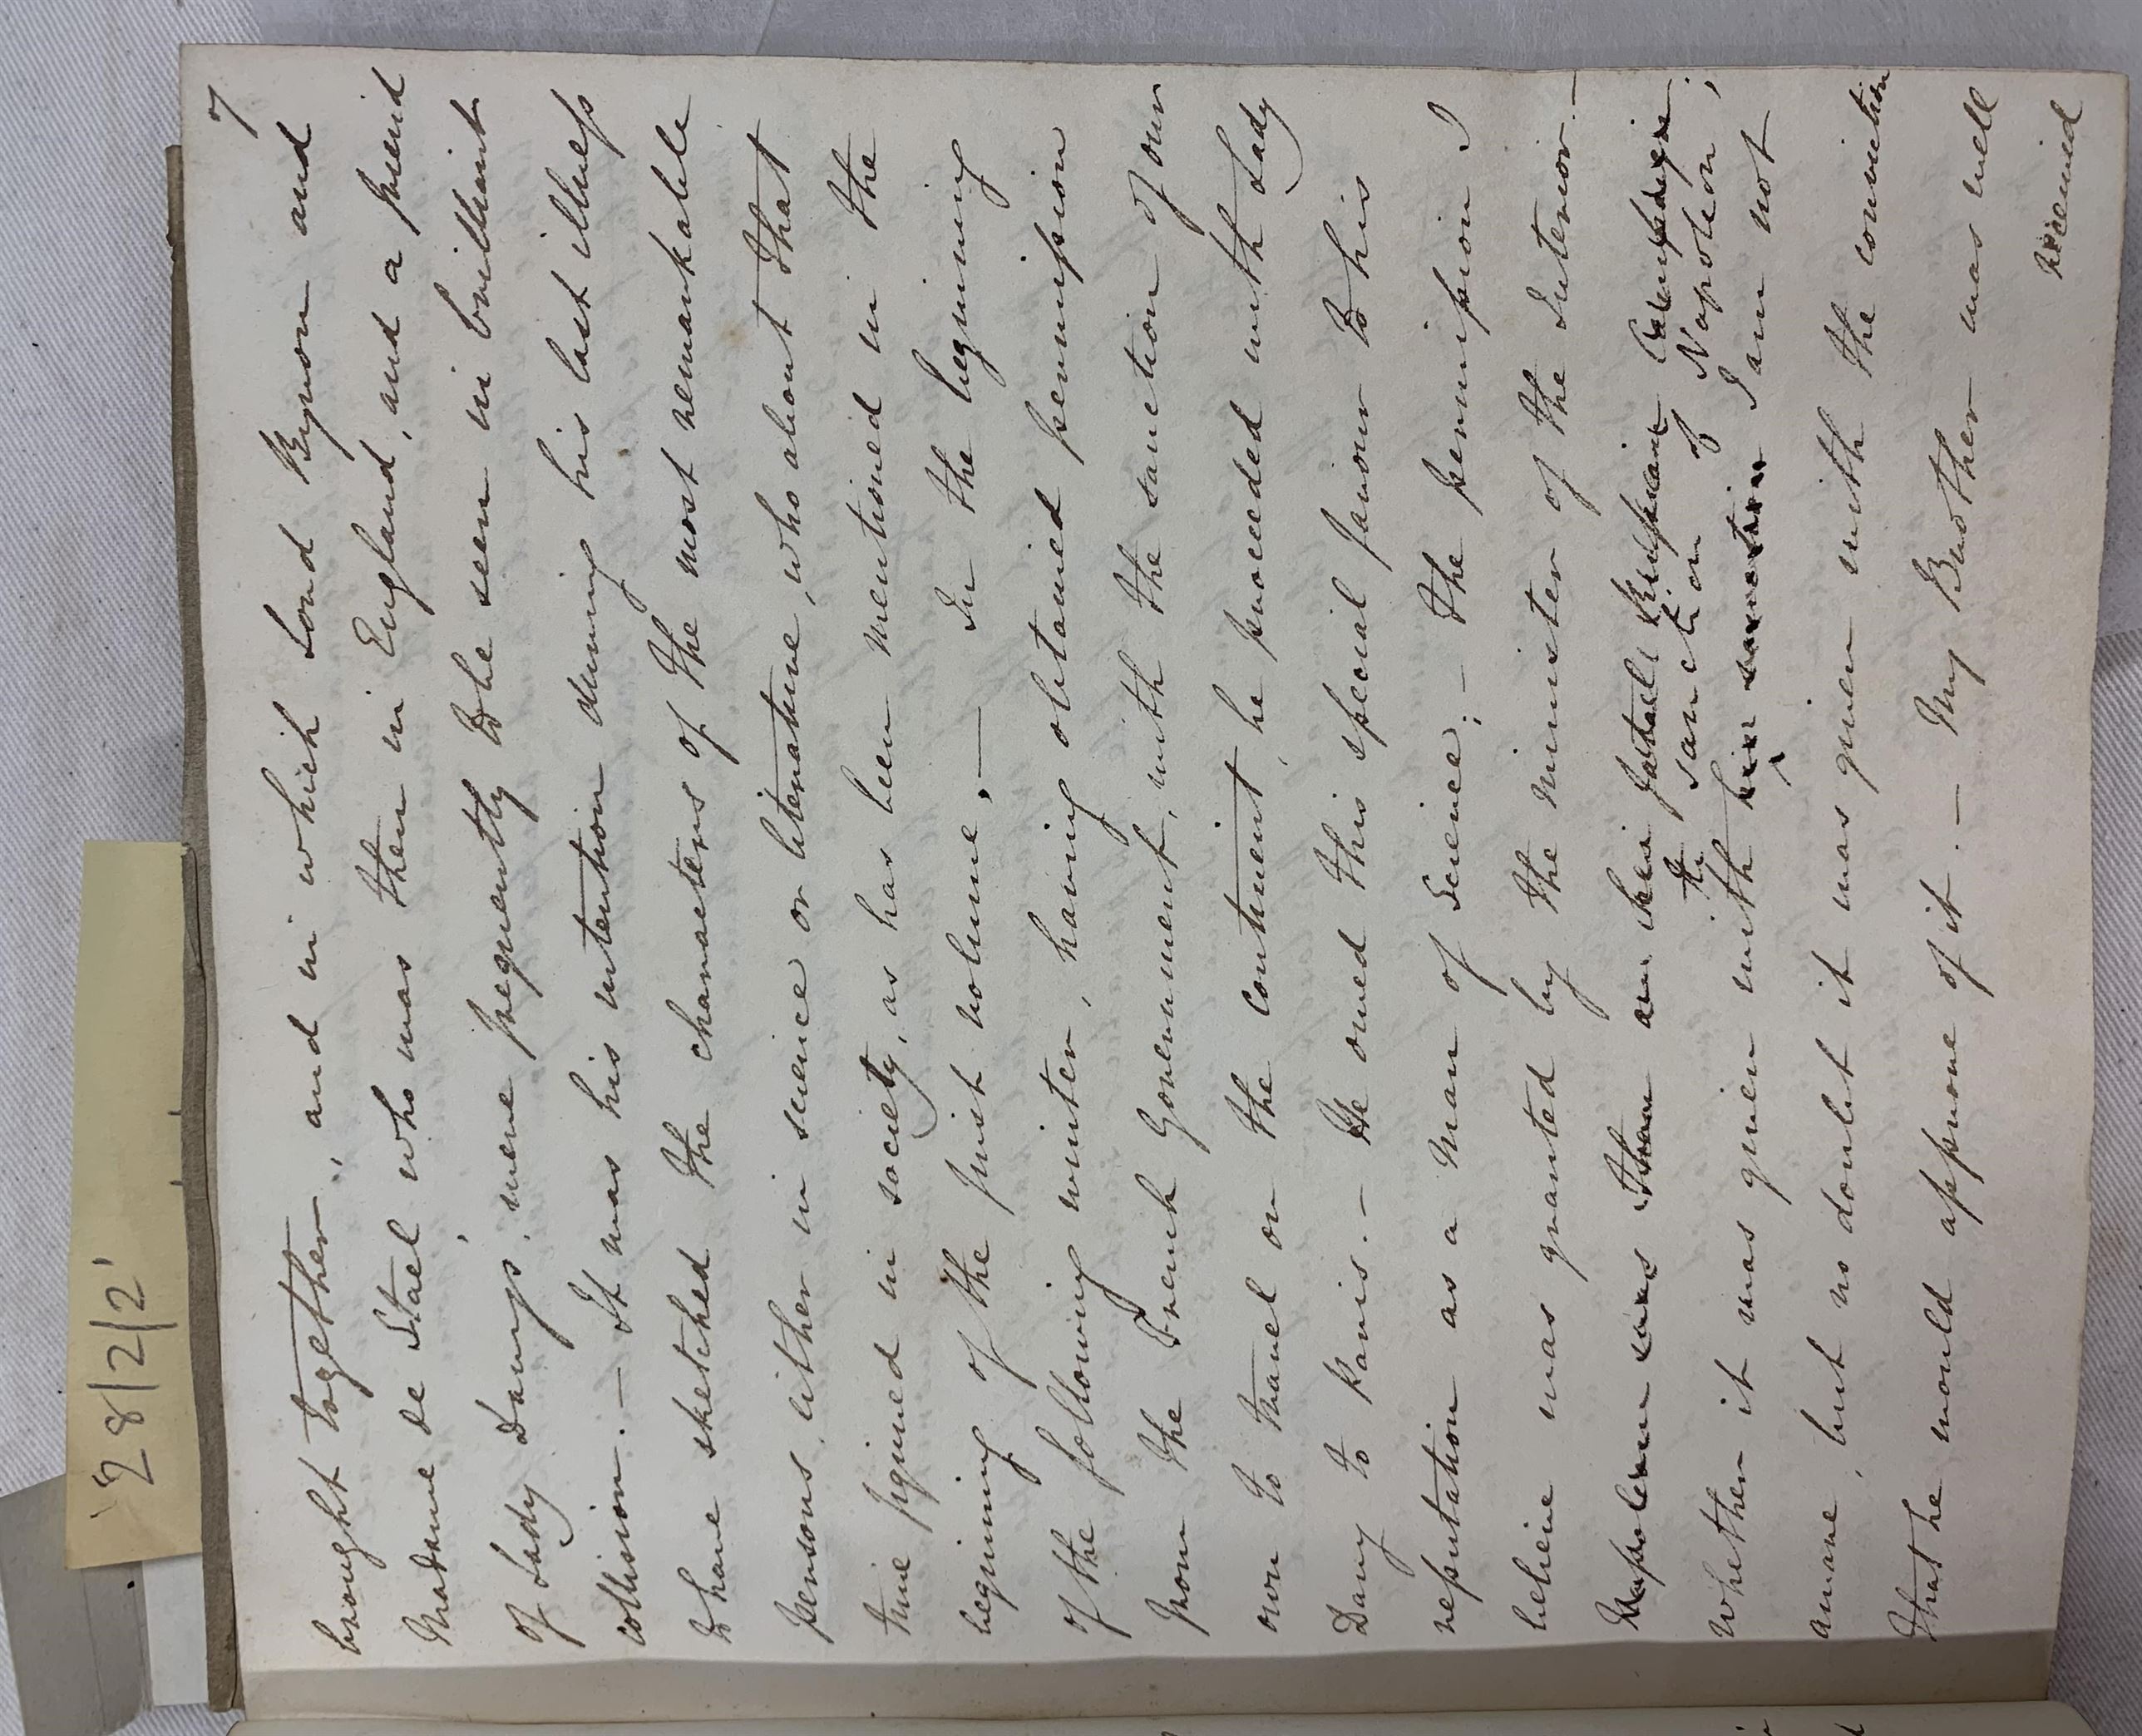 7
brought together, and in which Lord Byron and
Madame de Stael who was then in England, and a friend
of Lady Davy's, were frequently to be seen in brilliant
collision. – It was his intention during his last illness
to have sketched the characters of the most remarkable
persons either in science or literature, who about that
time figured in society, as has been mentioned in the
begining of the first volume. – In the beginning
of the following winter, having obtained permission
from the French Government, with the sanction of our
own to travel on the continent, he proceeded with Lady
Davy to Paris. – He owed this special favour to his
reputation as a man of science; – the permission I
believe was granted by the minister of the Interior. –
Napoleon was then on his fatall Russian Campaign;
the sanction of Napoleon;
Whether it was given with his sanction I am not
aware, but no doubt it was given with the conviction
that he would approve of it. – My Brother was well
received
28/2/2